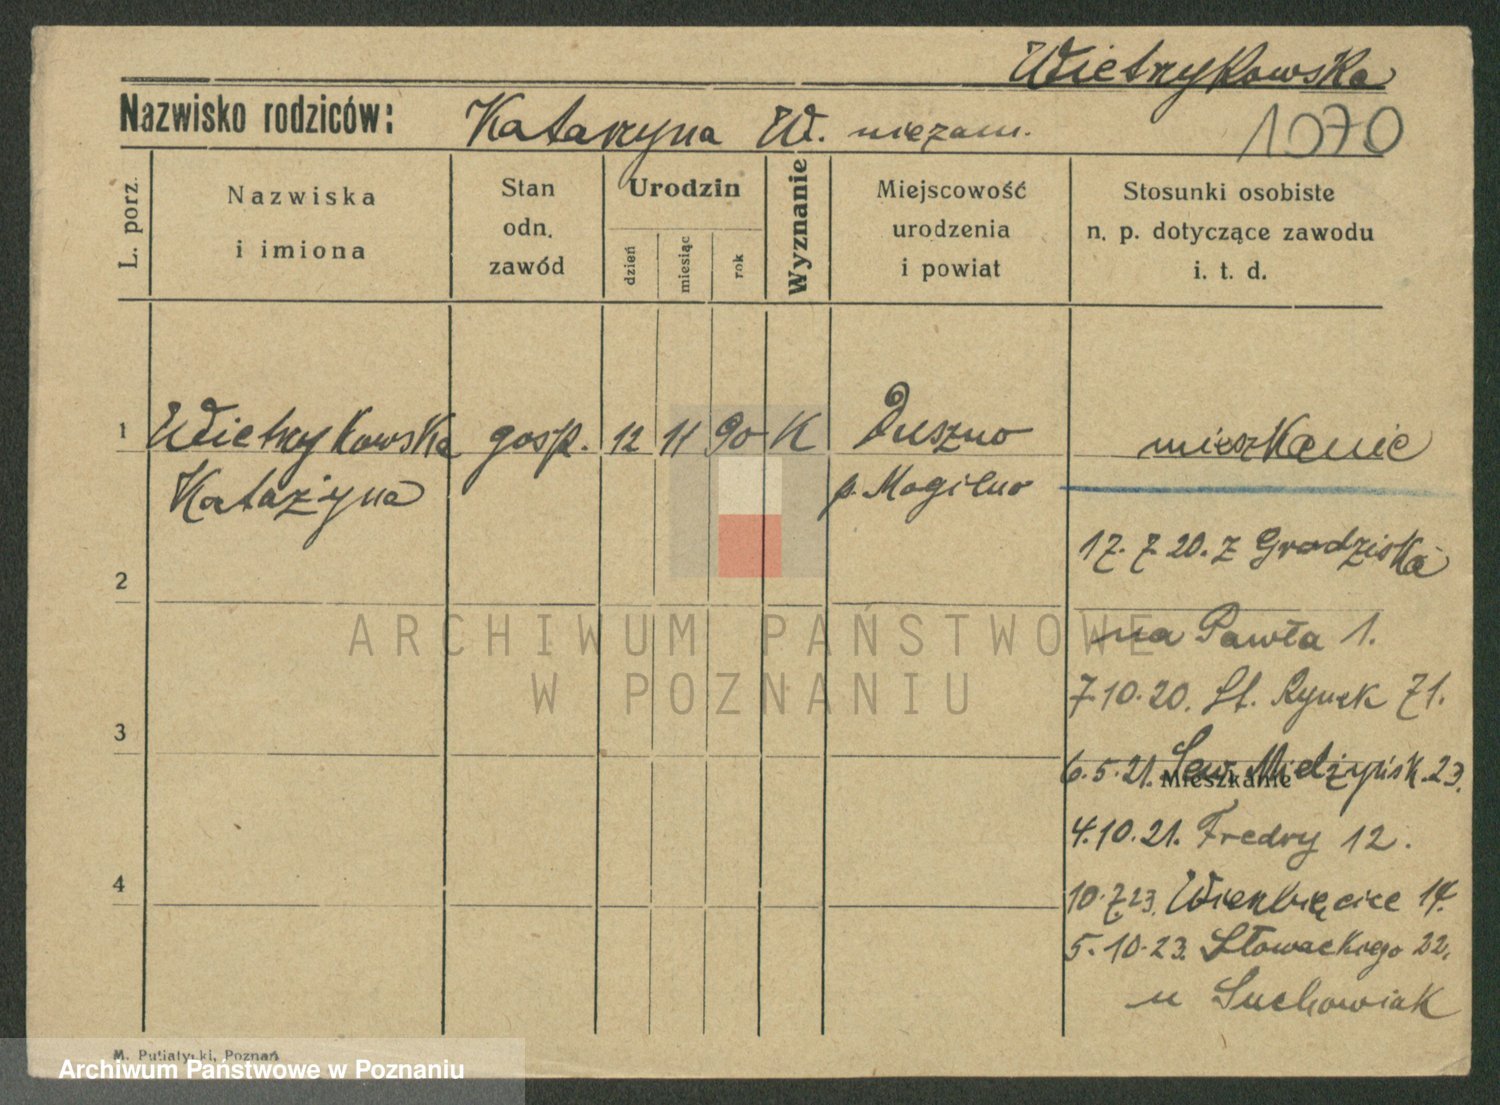 Wietrzykowska
Nazwisko rodziców: Katarzyna W. niezam.
1070
L. porz.
Nazwiska
i imiona
Stan
odn.
zawód
Urodzin
dzień
miesiąc
rok
Wyznanie
Miejscowość
urodzenia
i powiat
Stosunki osobiste
n. p. dotyczące zawodu
i. t. d.
1 Wietrzykowska gosp. 12 11 90 K Duszno mieszkanie
Katażyna p. Mogilno
17. 7. 20. z Grodziska
2
na Pawła 1.
7.10.20. St. Rynek 71.
3
6.5.21. Sew. Mielżyńsk. 23.
Mieszkanie
4.10.21. Fredry 12.
4
10.7.23. Wierzbięcice 14.
5.10.23. Słowackiego 22.
u Suchowiak
ARCHIWUM PAŃSTWOWE
W POZNANIU
M. Putiatycki, Poznań
Archiwum Państwowe w Poznaniu